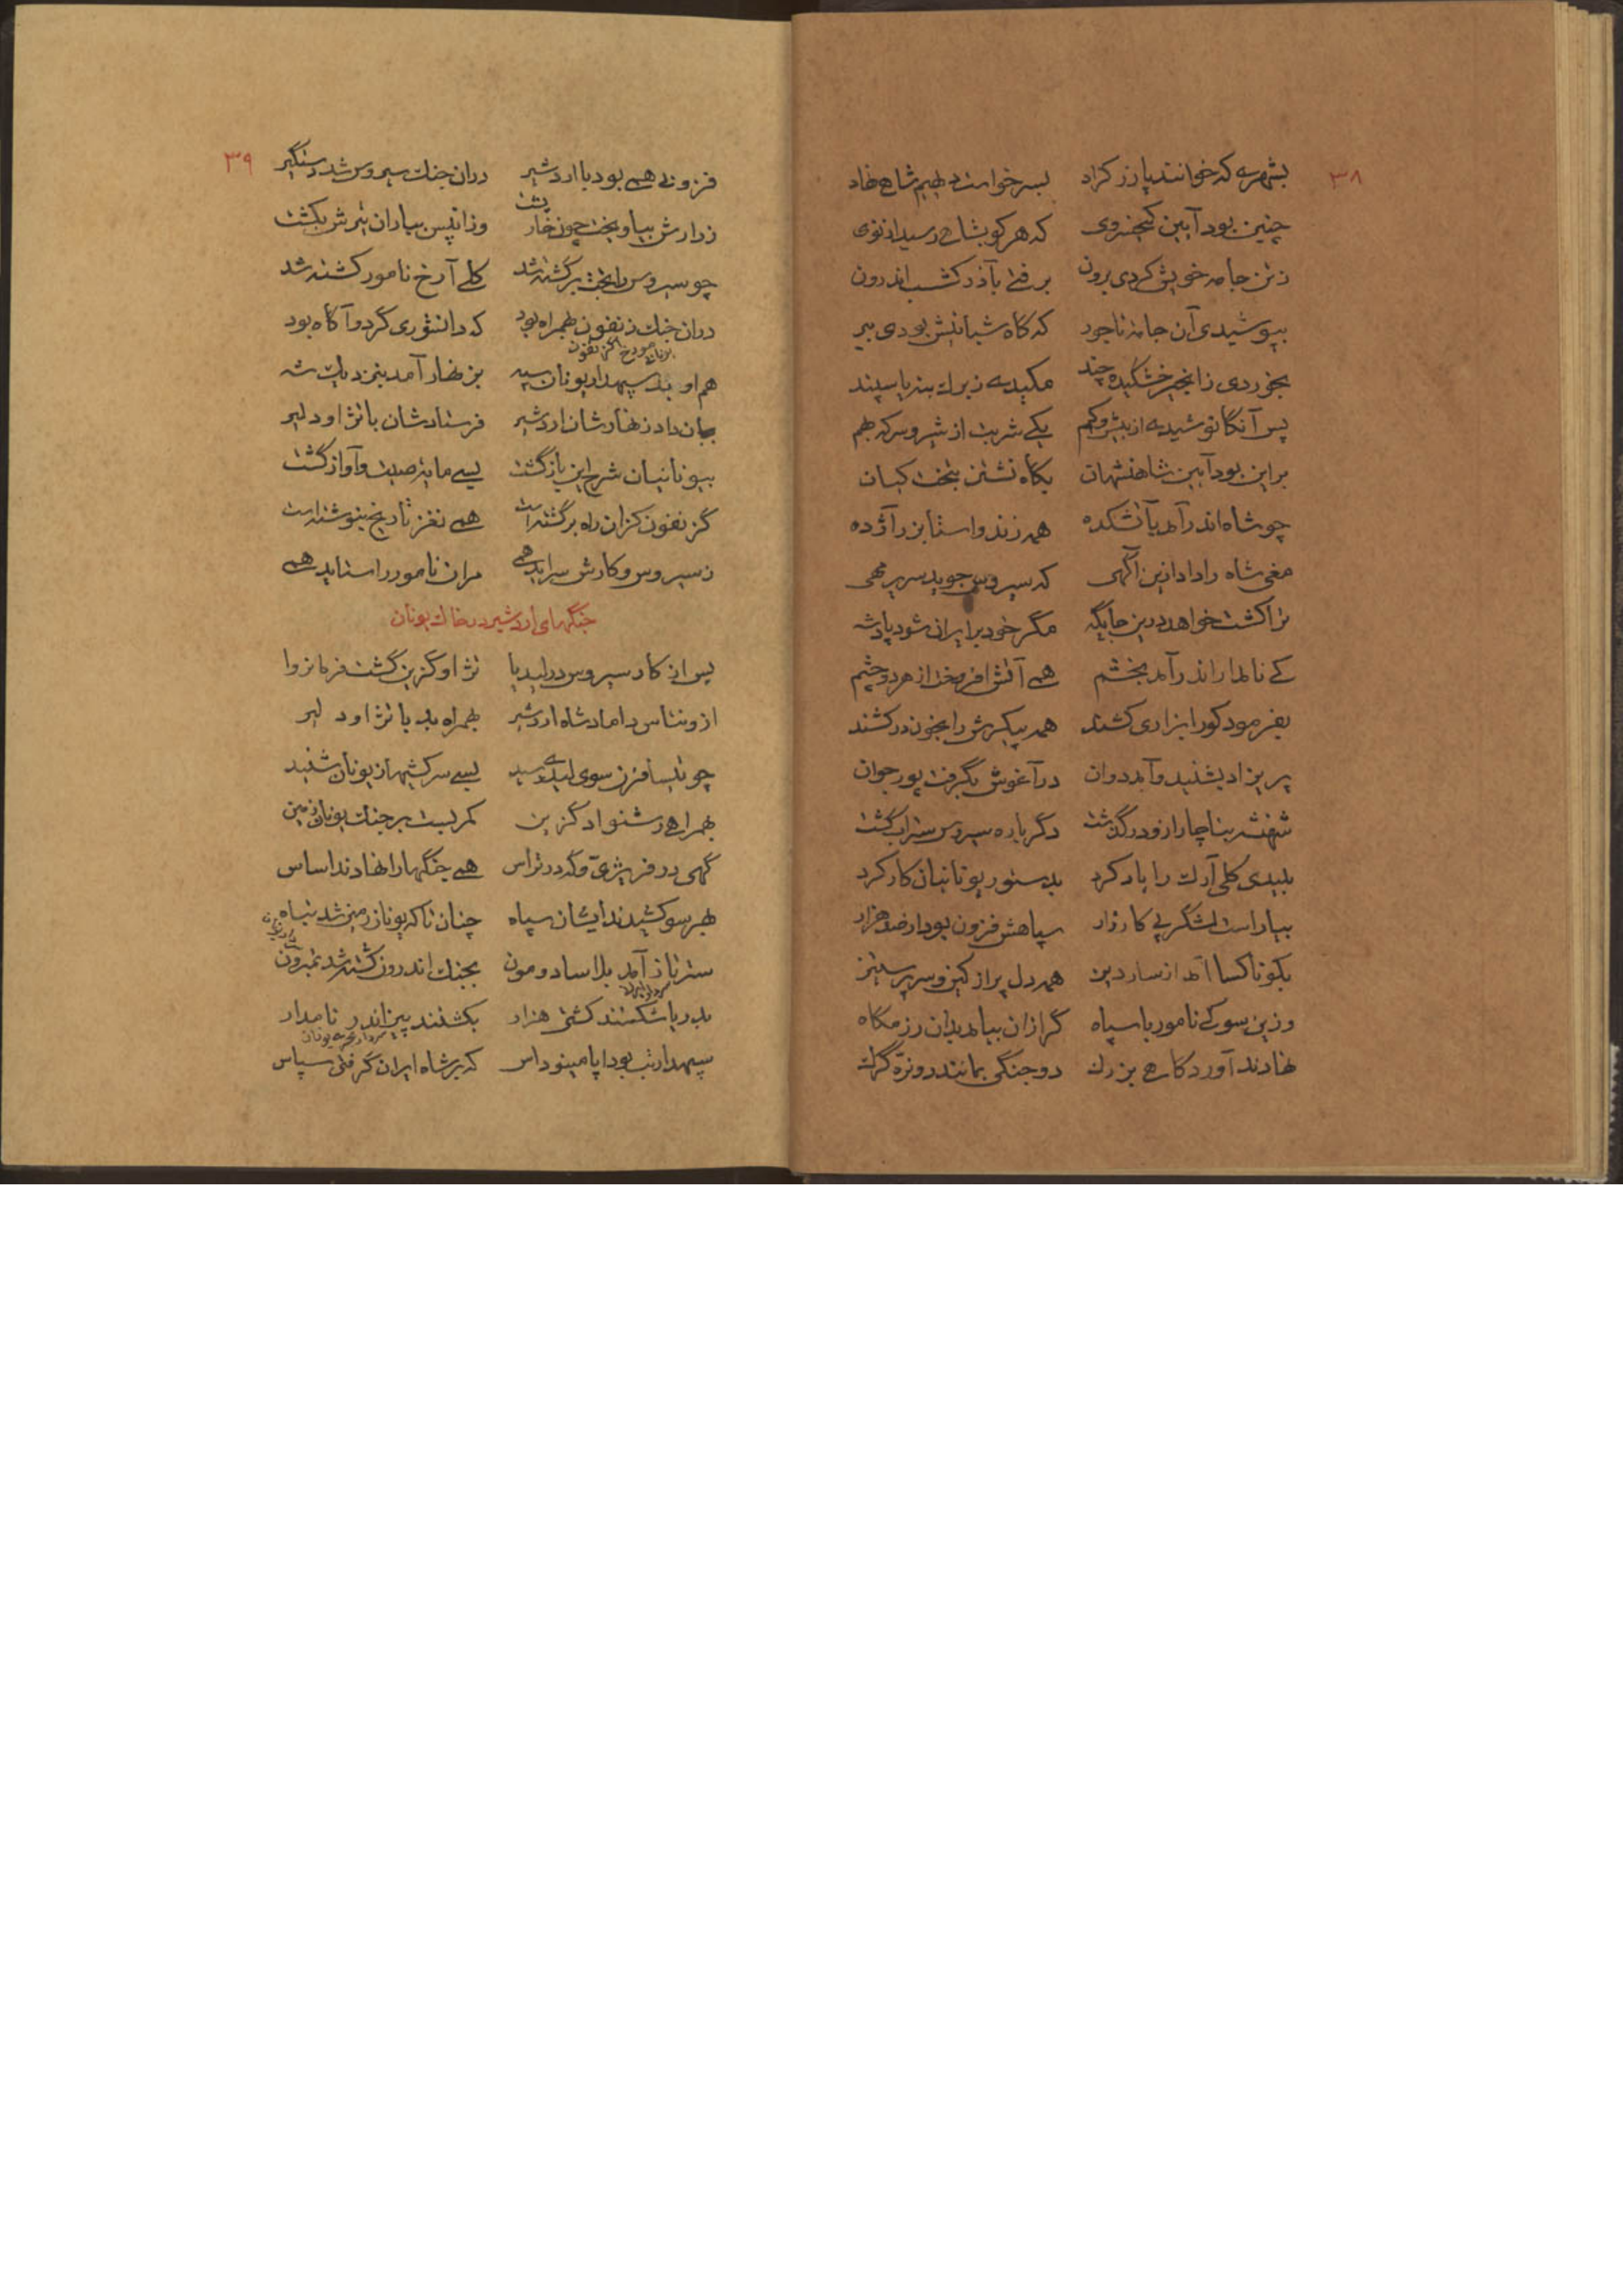 ۳۸
بشهری که خوانند پازرگراد بسر خواست دیهیم شاهی نهاد
چنین بود آیین کیخسروی که هر کو بشاهی رسید از نوی
ز تن جامه خویش کردی برون برفتی بآذرگشسب اندرون
بپوشیدی آن جامهٔ ناجود که گاه شبانیش بودی ببر
بخوردی ز انجیر خشکیده چند مکیدی ز برگ بنه یا سپند
پس آنگاه نوشیدی از بیش و کم یکی شربت از شیر و سرکه بهم
بر این بود آیین شاهنشهان بگاه نشستن بتخت کیان
چو شاه اندر آمد بآتشکده همه زند و استا بزر آژده
مغی شاه را داد ازین آگهی که سیروس جوید سریر مهی
ترا کشت خواهد درین جایگه مگر خود بر ایران شود پادشه
کی نامدار اندر آمد بخشم همی آتش افروخت از هر دو چشم
بفرمود کو را بزاری کشند همه پیکرش را بخون در کشند
پریزاد بشنید و آمد دوان در آغوش بگرفت پور جوان
شهنشه بناچار ازو درگذشت دگرباره سیروس ستراپ گشت
بلیدی کلی آرک را یار کرد بدستور یونانیان کار کرد
بیاراست لشگر پی کارزار سپاهش فزون بود از صد هزار
بکوناکسا آمد از سارد تیز همه دل پر از کین و سر پر ستیز
وزین سو کی نامور با سپاه گرازان بیامد بدان رزمگاه
نهادند آوردگاهی بزرگ دو جنگی بمانند دو نره گرگ
۳۹
فزونی همی بود با اردشیر در آن جنگ سیروس شد دستگیر
ز دارش بیاویخت چون خارپشت وزان پس بباران تیرش بکشت
چو سیروس را بخت برگشته شد کلی آرخ نامور کشته شد
در آن جنگ زنفون بهمراه بود که دانشوری گرد و آگاه بود
یونانی مورخ گزنفون
هم او بد سپهدار یونان سپه بزنهار آمد بنزدیک شه
بجان داد زنهارشان اردشیر فرستادشان با نژاو دلیر
بیونانیان شرح این بازگشت بسی مایهٔ صیت و آواز گشت
گزنفون کز آن راه برگشته است همی نغز تاریخ بنوشته است
ز سیروس و کارش سراید همی مران نامور را ستاید همی
جنگهای اردشیر در خاک یونان
پس از کار سیروس در لیدیا نژاو گزین گشت فرمانروا
ازونتاس داماد شاه اردشیر بهمراه بد با نژاو دلیر
چو تیسافرن سوی لیدی رسید بسی سرکشیها ز یونان شنید
بهمراهی رشنواد گزین کمر بست بر جنگ یونان زمین
گهی در فریژی و گه در تراس همی جنگها را نهادند اساس
بهر سو کشیدند ایشان سپاه چنان تا که یونان زمین شد تباه
ستر تاز آمد بلاسادومون بجنگ اندرون کشته شد تمبرون
سردار ایران
بدریا شکستند کشتی هزار بکشتند پیزاندر نامدار
سردار بحریه یونان
سپهدار تب بود اپامینوداس که بر شاه ایران گرفتی سپاس